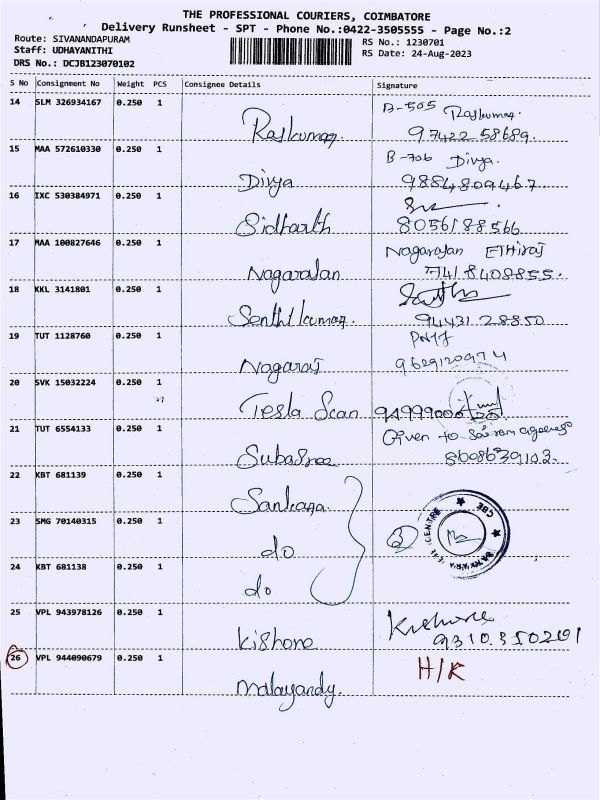 THE PROFESSIONAL COURIERS, COIMBATORE
Delivery Runsheet - SPT - Phone No.:0422-3505555 - Page No.:2
Route: SIVANANDAPURAM
RS No.: 1230701
Staff: UDHAYANITHI
RS Date: 24-Aug-2023
DRS No.: DCJB123070102
S No Consignment No Weight PCS Consignee Details Signature
14 SLM 326934167 0.250 1 Rajkumar. B-505 Rajkumar
97422 58689.
15 MAA 572610330 0.250 1 Divya B-706 Divya.
9884809467
16 IXC 530384971 0.250 1 Sidharth
8056188566
17 MAA 100827646 0.250 1 Nagarajan Nagarajan EThiraj
7418408855.
18 KKL 3141801 0.250 1 Senthilkumar.
94431 28850
19 TUT 1128760 0.250 1 Nagaraj
9629120974
20 SVK 15032224 0.250 1 Tesla Scan
21 TUT 6554133 0.250 1 Subasree Given to Sairam agency
8608639103.
22 KBT 681139 0.250 1 Sankara
23 SMG 70140315 0.250 1 do
24 KBT 681138 0.250 1 do
CENTRE ★ CBE ★ SANKARA
25 VPL 943978126 0.250 1 Kishore Kishore
9310350201
26 VPL 944090679 0.250 1 Malayandy. H/K